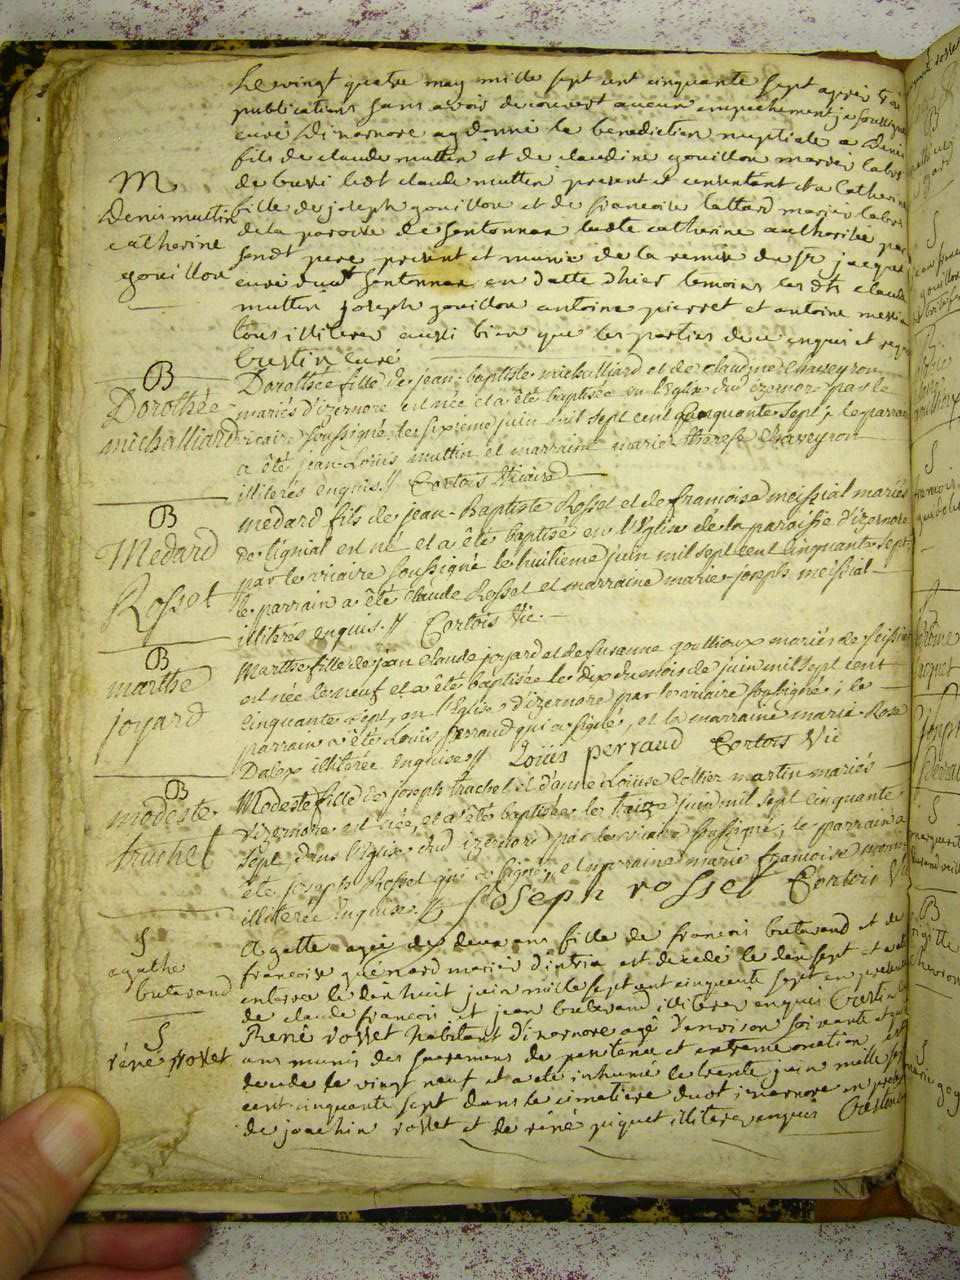 Le vingt quatre may mille sept cent cinquante sept apprès trois
publications sans avoir decouvert aucun empechement je soussigné
curé dizernore ay donné la benediction nuptiale a Denis
fils de claude muttin et de claudine gouillon mariés labrs
de bussi ledt claude muttin present et consentant et a Catherine
fille de joseph gouillon et de francoise lattard mariés labrs
de la paroisse de sentonnas ladte catherine authorisée par
sondt pere present et munie de la remise du sr jacquet
curé dudt sentonnas en datte dhier temoins les dts claude
muttin joseph gouillon antoine pierret et antoine messia
tous illiteres aussi bien que les parties de ce enquis et requis
Crestin curé
M
Denis muttin
catherine
gouillon
B
Dorothée
michalliard
Dorothée fille de jean-baptiste michalliard et de claudine Chaveyron
mariés d'izernore est née et a été baptisée en l'Eglise dud izernore par le
vicaire soussigné le sixieme juin mil sept cent cinquante sept; le parrain
a été jean-Louis muttin et marraine marie Therese Chaveyron
illiterés enquis // Cortois Vicaire
B
Medard
Rosset
medard fils de jean-Baptiste Rosset et de francoise meissiat mariés
de tigniat est né et a été baptisé en l'Eglise de la paroisse d'izernore
par le vicaire soussigné le huitieme juin mil sept cent cinquante sept
le parrain a été claude Rosset et marraine marie-joseph meissiat
illiterés enquis // Cortois Vic.
B
marthe
joyard
Marthe fille de jean claude joyard et de susanne goullioux mariés de seissia
est née le neuf et a été baptisée le dix du mois de juin mil sept cent
cinquante sept, en l'Eglise d'izernore par le vicaire soussigné; le
parrain a été Louis perraud qui a signé, et la marraine marie Rose
Dalex illiterée enquise // Loüis perraud Cortois Vic
B
modeste
trachet
Modeste fille de joseph trachet et d'anne Louise Collier martin mariés
d'izernore est née, et a été baptisée le treize juin mil sept cinquante
sept dans l'Eglise dud izernore par le vicaire soussigné; le parrain a
été joseph Rosset qui a signé, et marraine marie francoise
illiterée enquise. // Joseph rosset Cortois Vic
S
agathe
butavand
Agatte agée de deux ans fille de francois butavand et de
francoise guénard mariés d'intria est decedé le dix sept et a été
enterrée le dix huit juin mille sept cent cinquante sept en presence
de claude francois et jean butavand illiteres enquis Crestin
S
réné rosset
René rosset habitant d'izernore agé d'environ soixante et
ans munis des sacremens de penitence et extreme onction, est
decedé le vingt neuf et a été inhumé le trente juin mille sept
cent cinquante sept dans le cimetière dudt izernore en presence
de joachin rosset et de réné piquet illiteres enquis Crestin